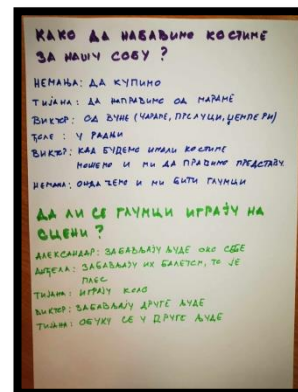 КАКО ДА НАБАВИМО КОСТИМЕ
ЗА НАШУ СОБУ ?
НЕМАЊА: ДА КУПИМО
ТИЈАНА: ДА НАПРАВИМО ОД МАРАМЕ
ВИКТОР: ОД ВУНЕ (ЧАРАПЕ, ПРСЛУЦИ, ЏЕМПЕРИ)
ЂОЛЕ : У РАДЊИ
ВИКТОР: КАД БУДЕМО ИМАЛИ КОСТИМЕ
МОЖЕМО И МИ ДА ПРАВИМО ПРЕДСТАВУ.
НЕМАЊА: ОНДА ЋЕМО И МИ БИТИ ГЛУМЦИ
ДА ЛИ СЕ ГЛУМЦИ ИГРАЈУ НА
СЦЕНИ ?
АЛЕКСАНДАР: ЗАБАВЉАЈУ ЉУДЕ ОКО СЕБЕ
АНЂЕЛА: ЗАБАВЉАЈУ ИХ БАЛЕТОМ, ТО ЈЕ
ПЛЕС
ТИЈАНА: ИГРАЈУ КОЛО
ВИКТОР: ЗАБАВЉАЈУ ДРУГЕ ЉУДЕ
ТИЈАНА: ОБУКУ СЕ У ДРУГЕ ЉУДЕ